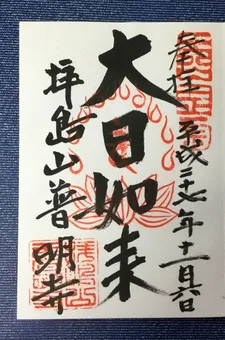 奉拝 平成二十七年十一月六日
大日如来
坪島山普明寺